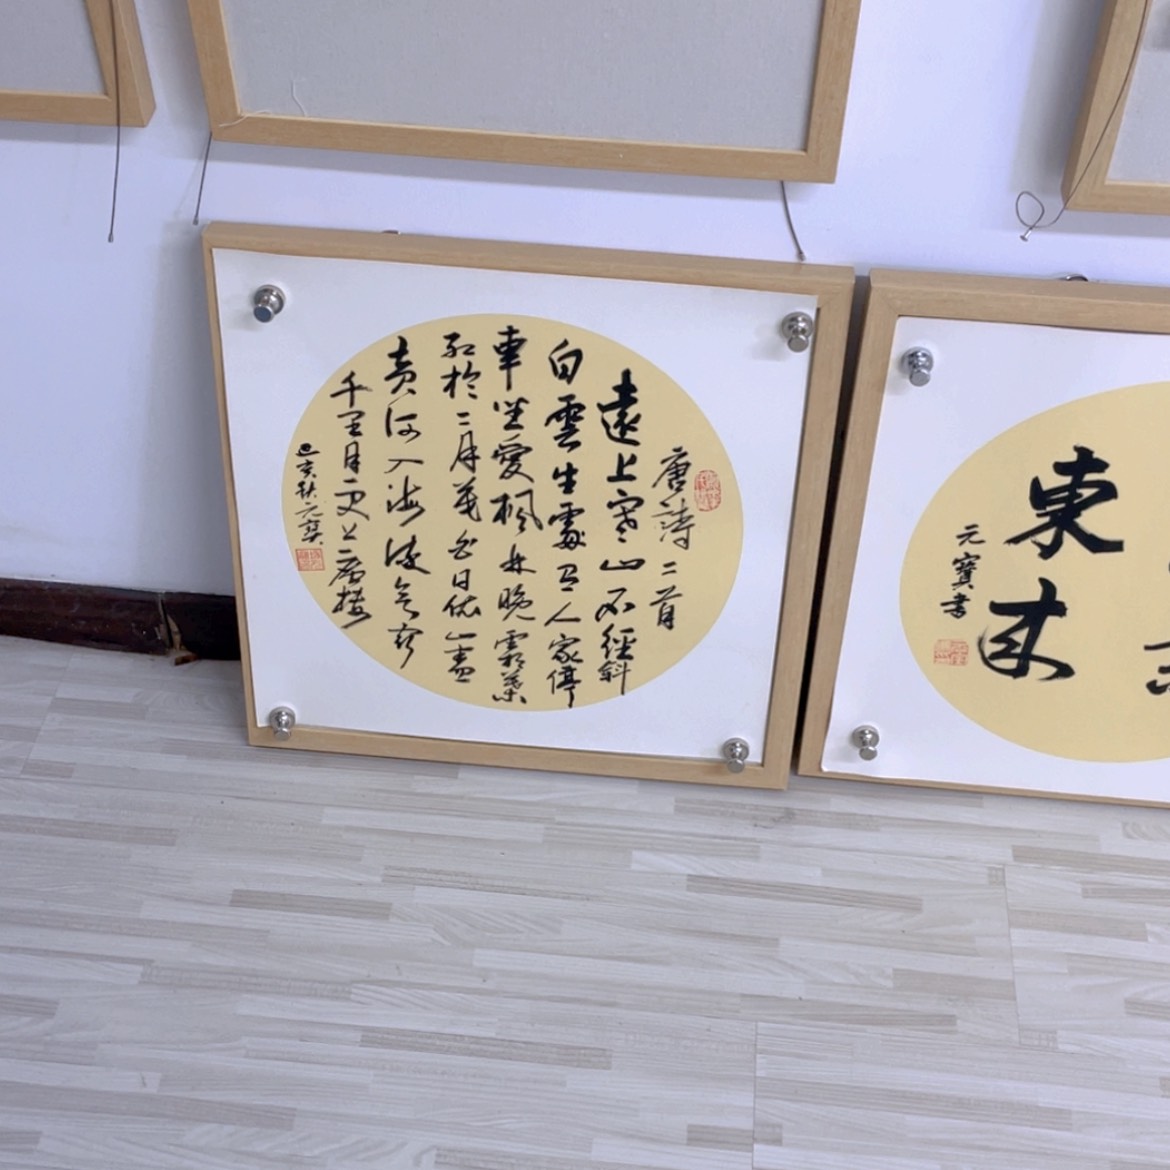 唐詩二首
遠上寒山石徑斜
白雲生處有人家停
車坐愛楓林晚霜葉
紅於二月花白日依山盡
黃河入海流欲窮
千里目更上一層樓
己亥秋元寶
東來
元寶書